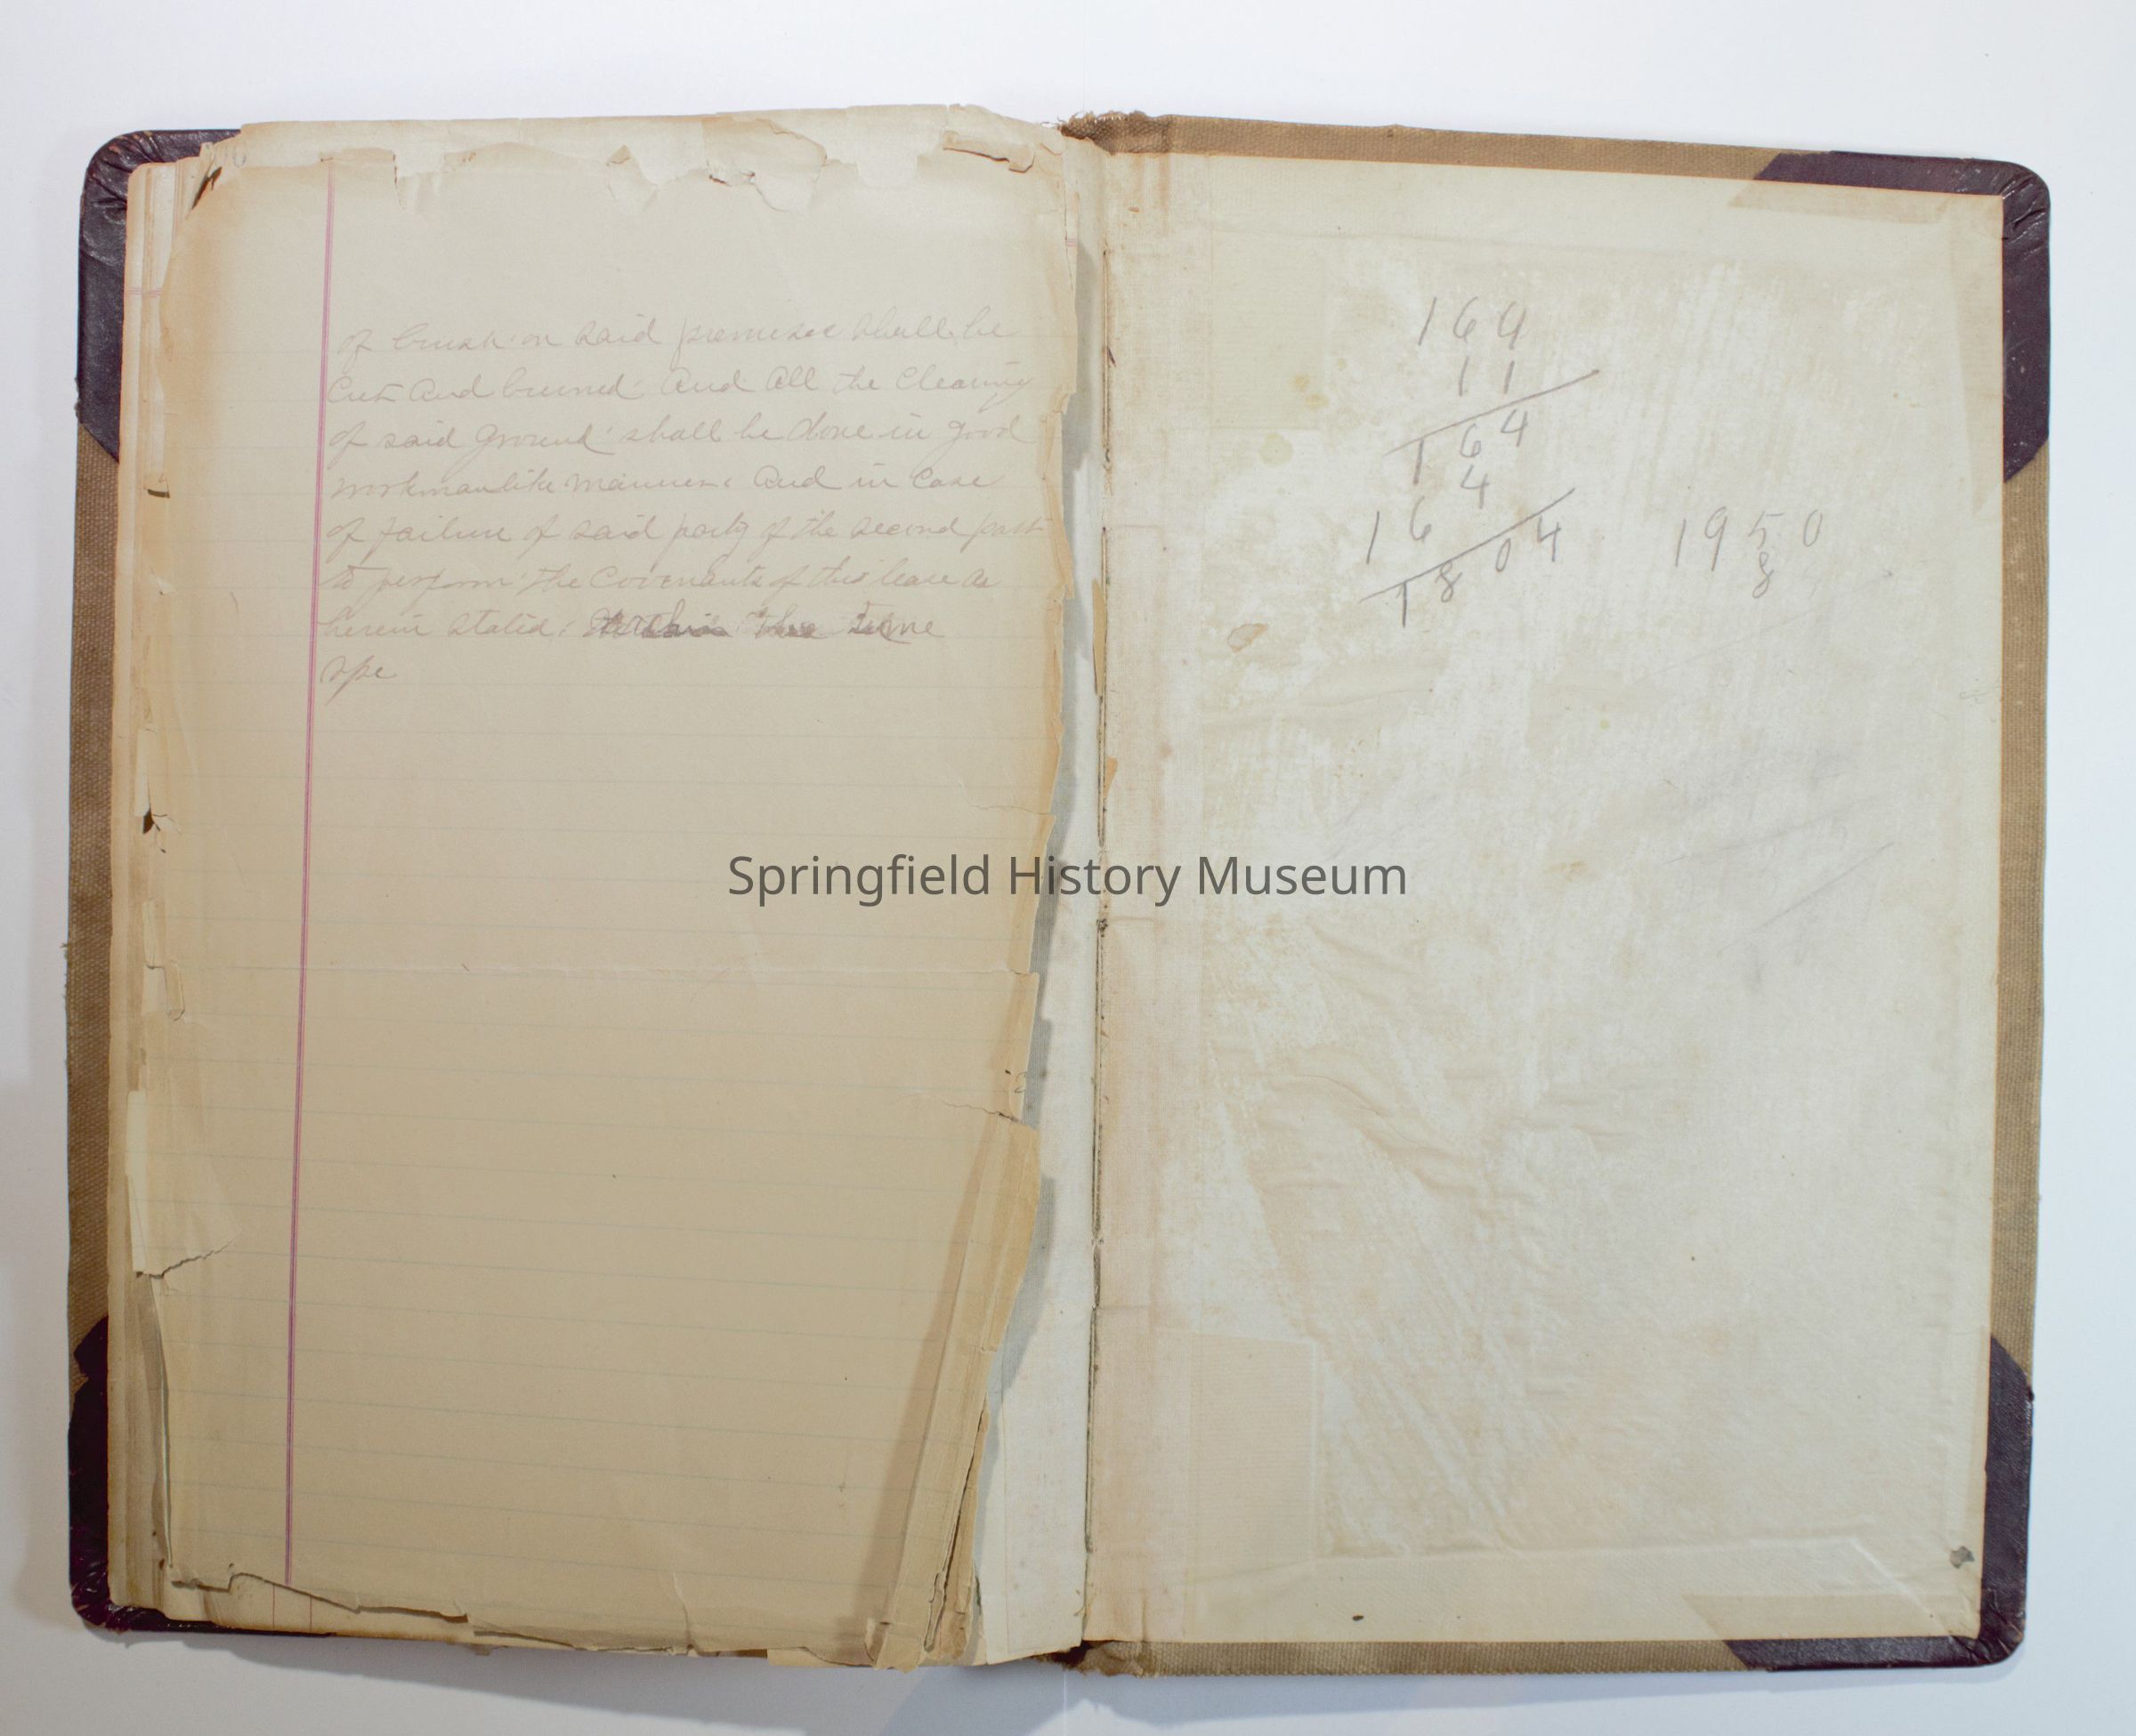 of brush on said premises shall be
Cut and burned: and all the Clearing
of said ground shall be done in good
workmanlike manner: and in Case
of failure of said party of the second part
to perform the Covenants of this lease as
herein stated: the time
spe
164
11
164
4
16
1804
1950
8
Springfield History Museum